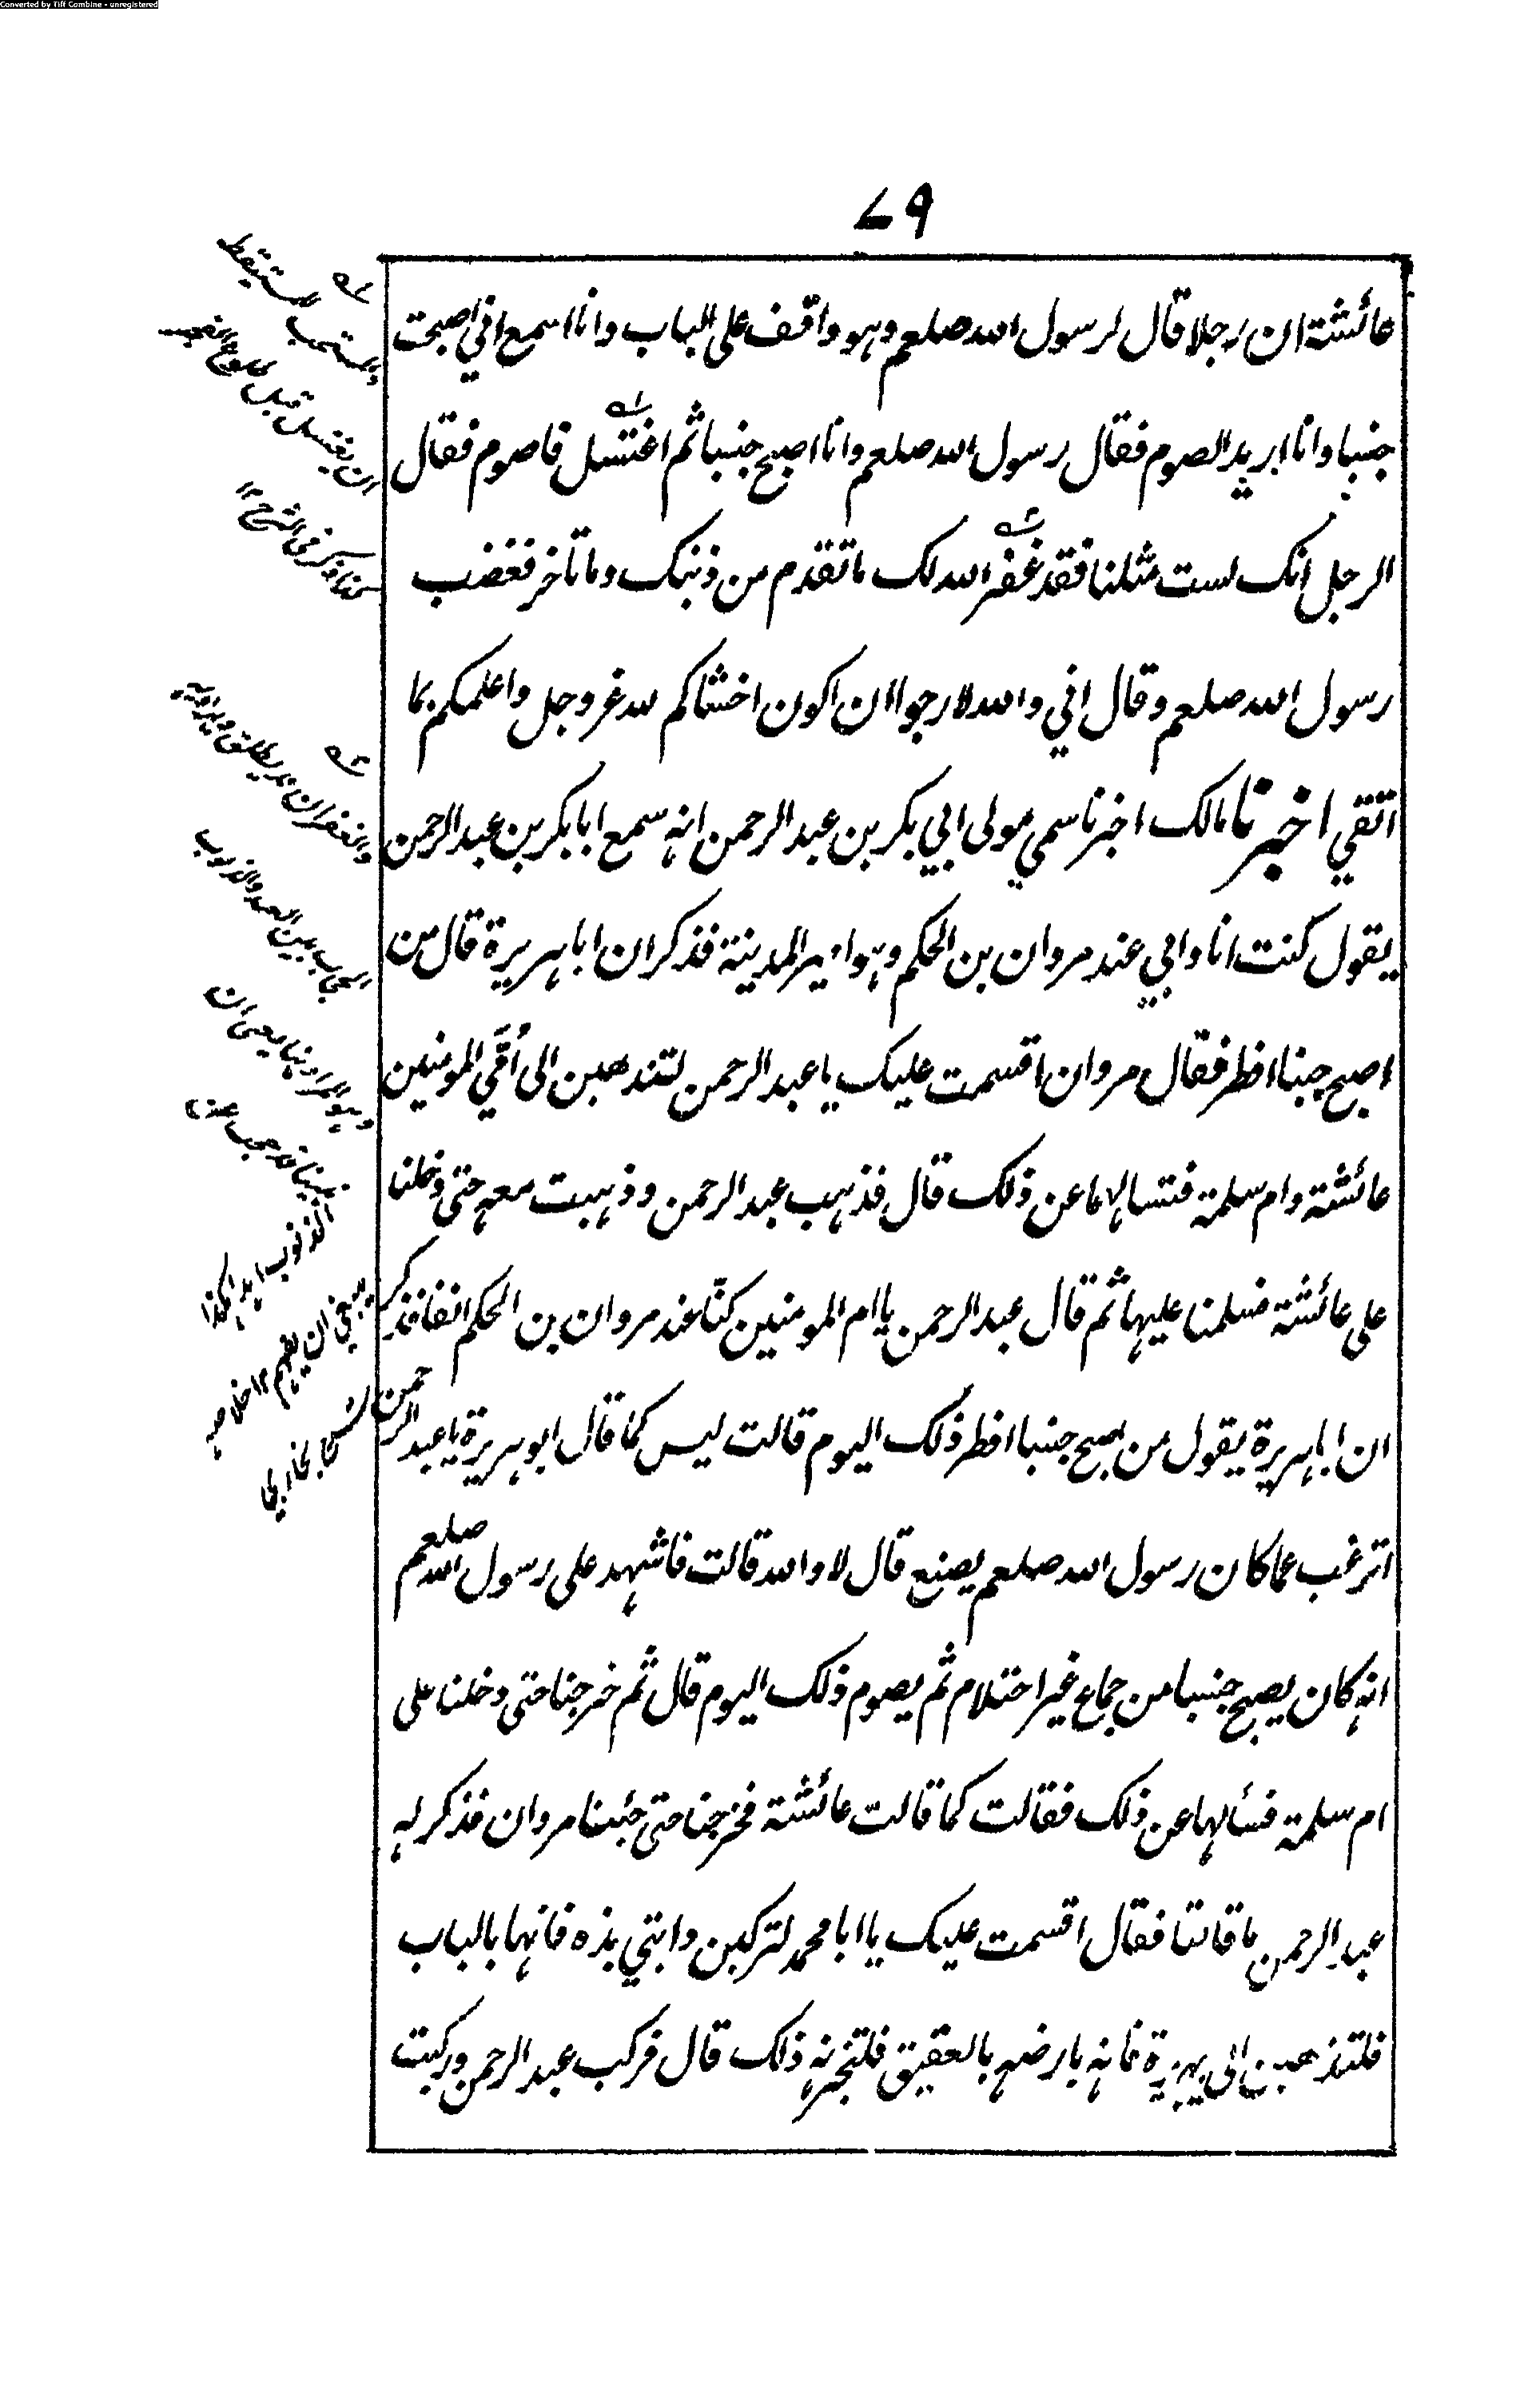 Converted by Tiff Combine - unregistered
۷۹
عائشة ان رجلا قال لرسول الله صلعم وهو واقف على الباب وانا اسمع اني اصبحت
جنبا وانا اريد الصوم فقال رسول الله صلعم وانا اصبح جنبا ثم اغتسل فاصوم فقال
الرجل انك لست مثلنا فقد غفر الله لك ما تقدم من ذنبك وما تاخر فغضب
رسول الله صلعم وقال اني والله لارجوا ان اكون اخشاكم لله عز وجل واعلمكم بما
اتقي اخبرنا مالك اخبرنا سمي مولى ابي بكر بن عبد الرحمن انه سمع ابا بكر بن عبد الرحمن
يقول كنت انا وابي عند مروان بن الحكم وهو امير المدينة فذكر ان ابا هريرة قال من
اصبح جنبا افطر فقال مروان اقسمت عليك يا عبد الرحمن لتذهبن الى اُمَّي المومنين
عائشة وام سلمة فتسالهما عن ذلك قال فذهب عبد الرحمن وذهبت معه حتى دخلنا
على عائشة فسلمنا عليها ثم قال عبد الرحمن يا ام المومنين كنّا عند مروان بن الحكم انفا فذكر
ان ابا هريرة يقول من اصبح جنبا افطر ذلك اليوم قالت ليس كما قال ابو هريرة يا عبد الرحمن
اترغب عما كان رسول الله صلعم يصنع قال لا والله قالت فاشهد على رسول الله صلعم
انه كان يصبح جنبا من جماع غير احتلام ثم يصوم ذلك اليوم قال ثم خرجنا حتى دخلنا على
ام سلمة فسألها عن ذلك فقالت كما قالت عائشة فخرجنا حتى جئنا مروان فذكر له
عبد الرحمن ما قالتا فقال اقسمت عليك يا ابا محمد لتركبن دابتي هذه فانها بالباب
فلتذهبن الى ابي هريرة فانه بارضه بالعقيق فلتخبرنه ذلك قال فركب عبد الرحمن وركبت
ان يغتسل قبل طلوع الفجر
الحجاب بين العبد والذنوب